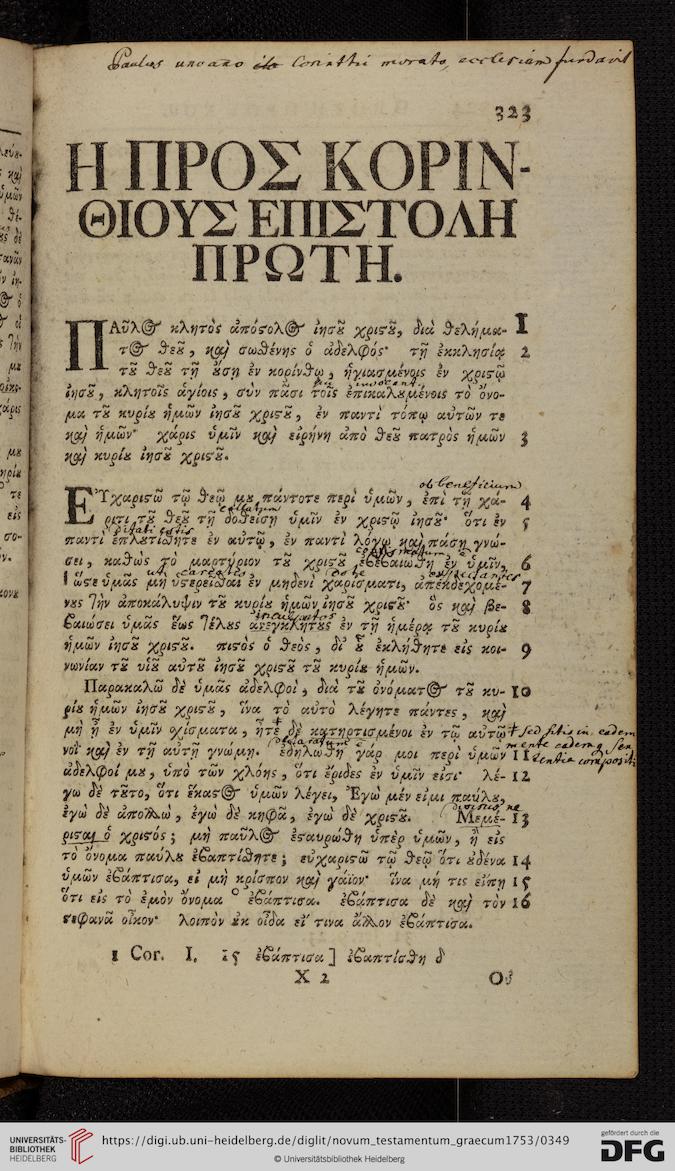 Paulus uno anno Corinthii morato, ecclesiam fundavit
323
Η ΠΡΟΣ ΚΟΡΙΝ-
ΘΙΟΥΣ ΕΠΙΣΤΟΛΗ
ΠΡΩΤΗ.
ΠΑῦλος κλητὸς ἀπόστολος ἰησοῦ χριστοῦ, διὰ θελήμα- 1
τος θεοῦ, καὶ σωσθένης ὁ ἀδελφός· τῇ ἐκκλησίᾳ 2
τοῦ θεοῦ τῇ οὔσῃ ἐν κορίνθῳ, ἡγιασμένοις ἐν χριστῷ
invocant
ἰησοῦ, κλητοῖς ἁγίοις, σὺν πᾶσι τοῖς ἐπικαλουμένοις τὸ ὄνο-
μα τοῦ κυρίου ἡμῶν ἰησοῦ χριστοῦ, ἐν παντὶ τόπῳ αὐτῶν τε
καὶ ἡμῶν· χάρις ὑμῖν καὶ εἰρήνη ἀπὸ θεοῦ πατρὸς ἡμῶν 3
καὶ κυρίου ἰησοῦ χριστοῦ.
ob beneficium
ΕΥ̓χαριστῶ τῷ θεῷ μου πάντοτε περὶ ὑμῶν, ἐπὶ τῇ χά- 4
ριτι τοῦ θεοῦ τῇ δοθείσῃ ὑμῖν ἐν χριστῷ ἰησοῦ· ὅτι ἐν 5
ditati estis
παντὶ ἐπλουτίσθητε ἐν αὐτῷ, ἐν παντὶ λόγῳ καὶ πάσῃ γνώ-
σει, καθὼς τὸ μαρτύριον τοῦ χριστοῦ ἐβεβαιώθη ἐν ὑμῖν, 6
ὥστε ὑμᾶς μὴ ὑστερεῖσθαι ἐν μηδενὶ χαρίσματι, ἀπεκδεχομέ- 7
νους τὴν ἀποκάλυψιν τοῦ κυρίου ἡμῶν ἰησοῦ χριστοῦ· ὃς καὶ βε- 8
βαιώσει ὑμᾶς ἕως τέλους ἀνεγκλήτους ἐν τῇ ἡμέρᾳ τοῦ κυρίου
ἡμῶν ἰησοῦ χριστοῦ. πιστὸς ὁ θεὸς, δι' οὗ ἐκλήθητε εἰς κοι- 9
νωνίαν τοῦ υἱοῦ αὐτοῦ ἰησοῦ χριστοῦ τοῦ κυρίου ἡμῶν.
Παρακαλῶ δὲ ὑμᾶς ἀδελφοὶ, διὰ τοῦ ὀνόματος τοῦ κυ- 10
ρίου ἡμῶν ἰησοῦ χριστοῦ, ἵνα τὸ αὐτὸ λέγητε πάντες, καὶ
μὴ ᾖ ἐν ὑμῖν σχίσματα, ἦτε δὲ κατηρτισμένοι ἐν τῷ αὐτῷ + sed sitis in eadem
νοῒ καὶ ἐν τῇ αὐτῇ γνώμῃ. ἐδηλώθη γάρ μοι περὶ ὑμῶν 11 mente eademq sen
ἀδελφοί μου, ὑπὸ τῶν χλόης, ὅτι ἔριδες ἐν ὑμῖν εἰσι· λέ- 12 tentia compositi
γω δὲ τοῦτο, ὅτι ἕκαστος ὑμῶν λέγει, Ἐγὼ μέν εἰμι παύλου,
divisus ne
ἐγὼ δὲ ἀπολλὼ, ἐγὼ δὲ κηφᾶ, ἐγὼ δὲ χριστοῦ. Μεμέ- 13
ρισται ὁ χριστός; μὴ παῦλος ἐσταυρώθη ὑπὲρ ὑμῶν, ἢ εἰς
τὸ ὄνομα παύλου ἐβαπτίσθητε; εὐχαριστῶ τῷ θεῷ ὅτι οὐδένα 14
ὑμῶν ἐβάπτισα, εἰ μὴ κρίσπον καὶ γάϊον· ἵνα μή τις εἴπῃ 15
ὅτι εἰς τὸ ἐμὸν ὄνομα ἐβάπτισα. ἐβάπτισα δὲ καὶ τὸν 16
στεφανᾶ οἶκον· λοιπὸν οὐκ οἶδα εἴ τινα ἄλλον ἐβάπτισα.
1 Cor. I. 15 ἐβάπτισα ] ἐβαπτίσθη δ
X 2 Οὐ
UNIVERSITÄTS-
BIBLIOTHEK
HEIDELBERG
https://digi.ub.uni-heidelberg.de/diglit/novum_testamentum_graecum1753/0349
© Universitätsbibliothek Heidelberg
gefördert durch die
DFG